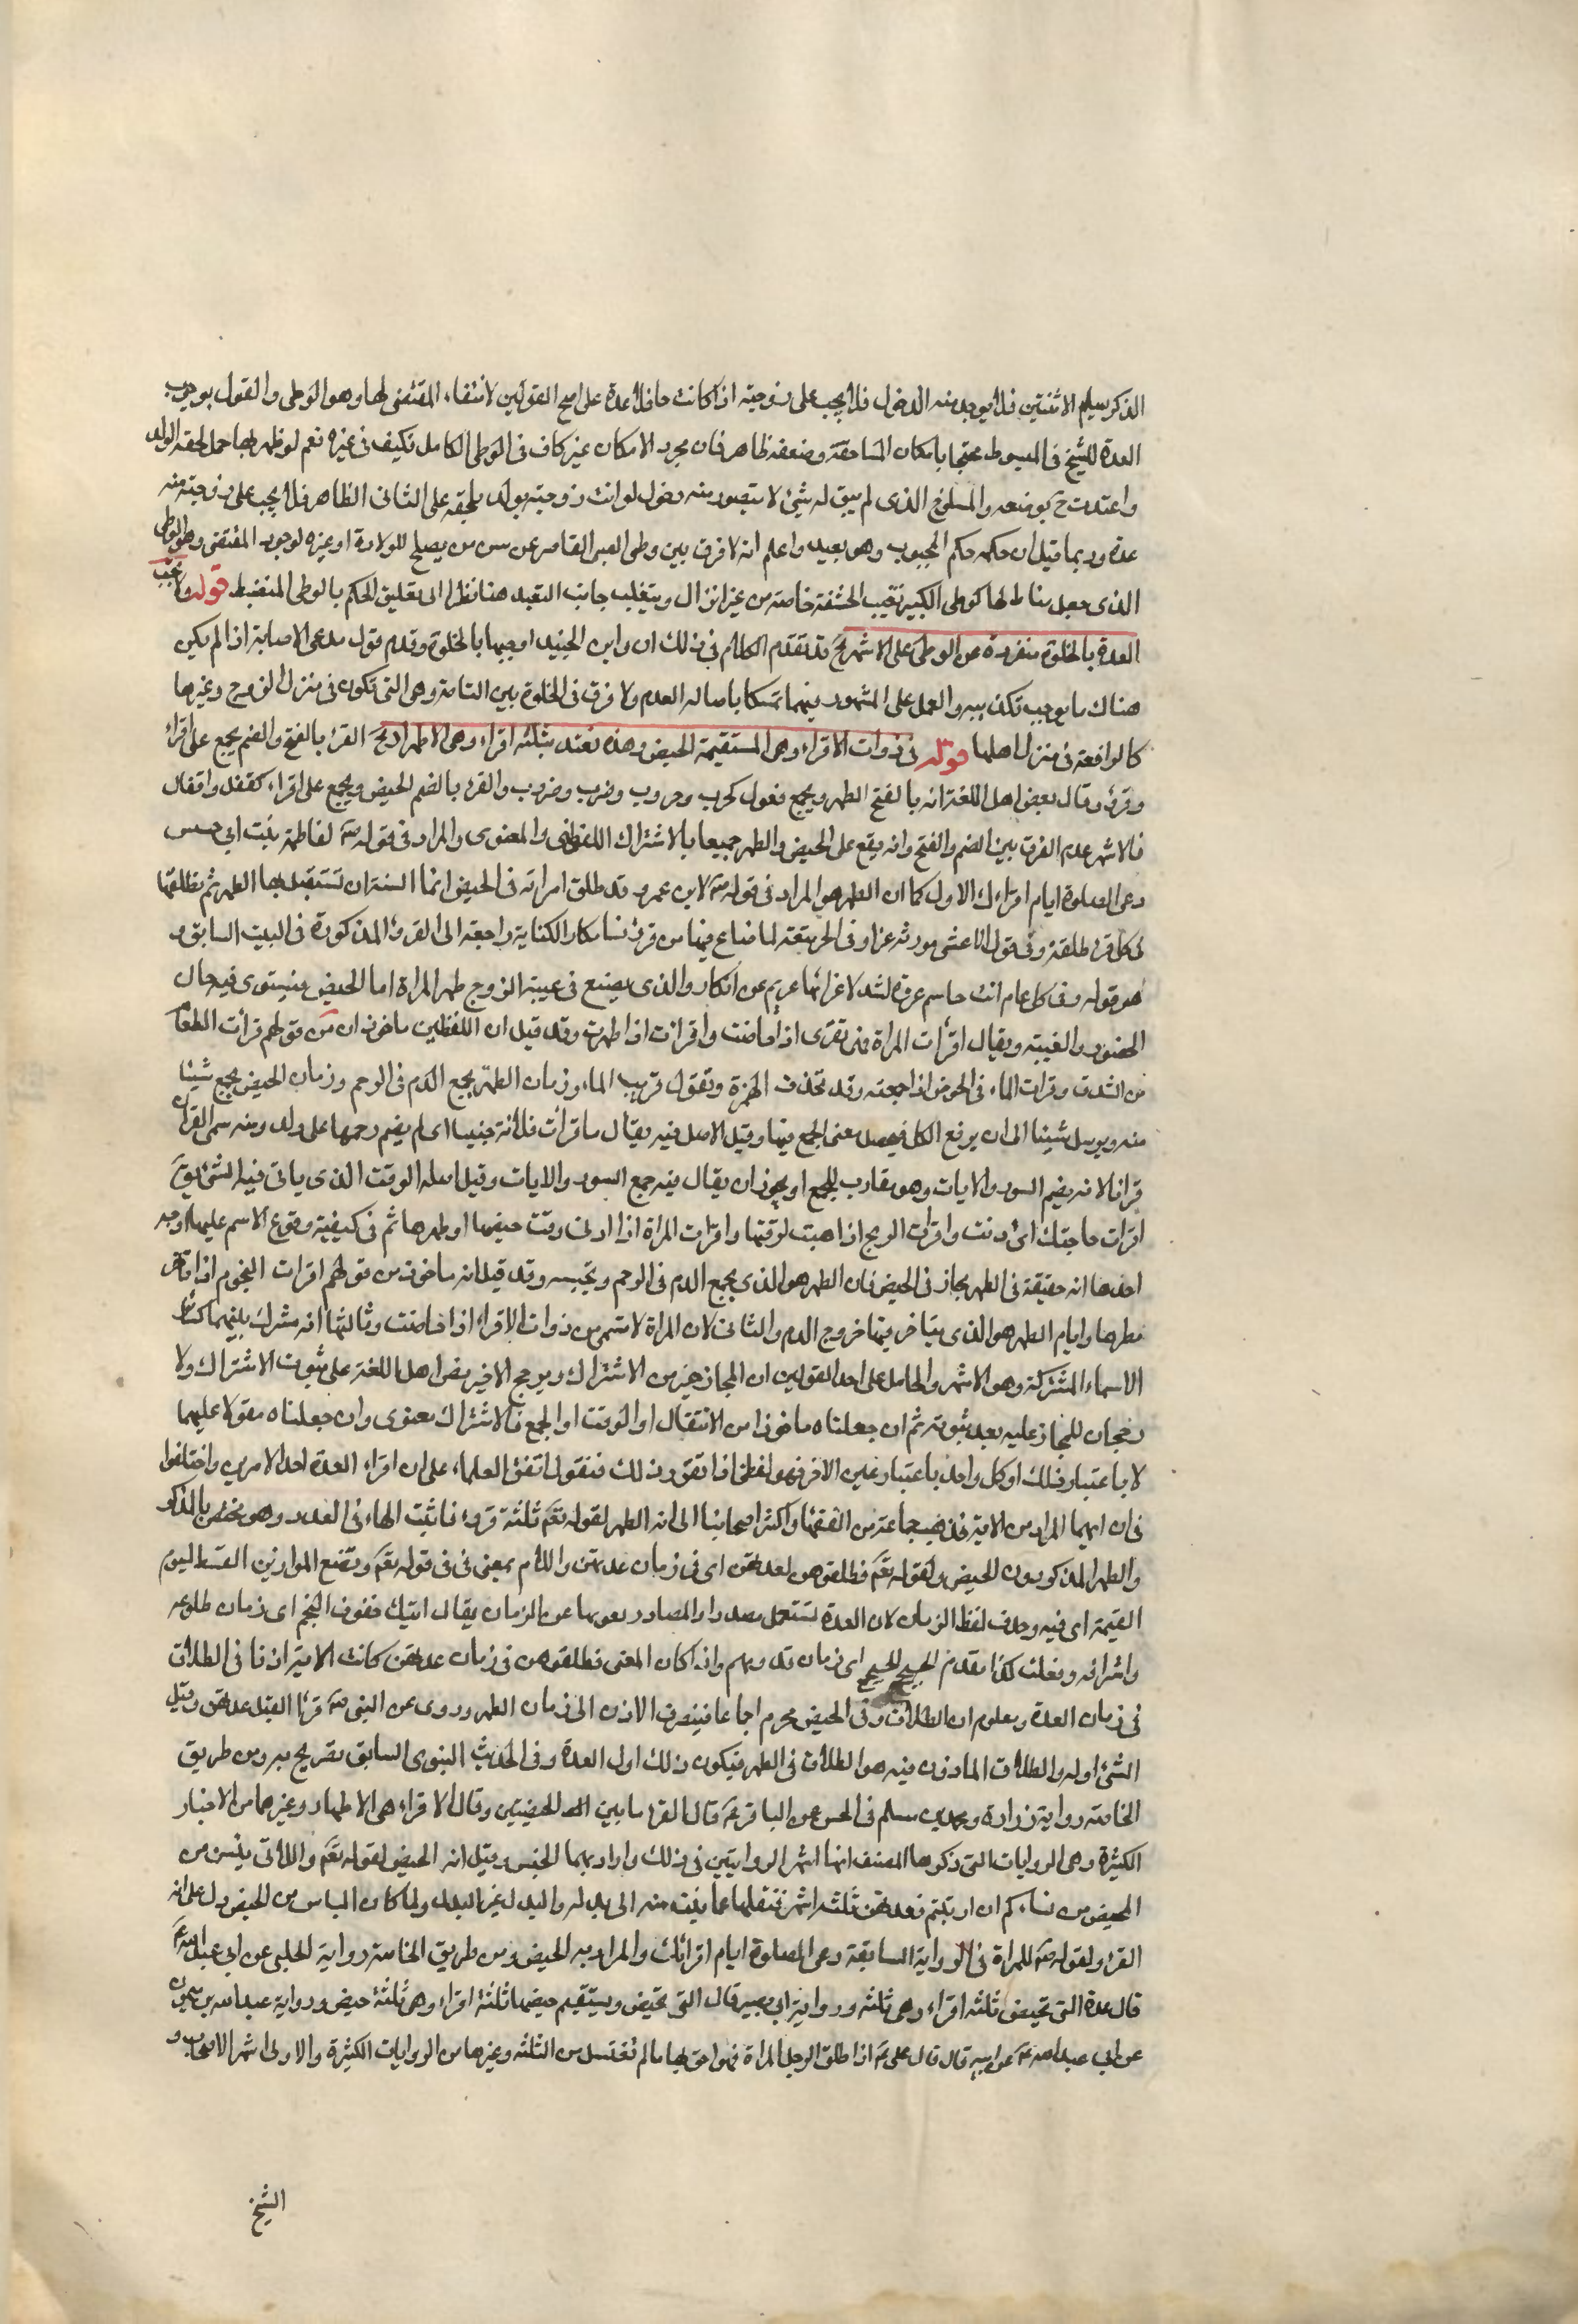 الذكر سليم الانثيين فلا يوجد منه الدخول فلا يجب على زوجته اذا كانت حائلا عدة على اصح القولين لانتفاء المقتضى لها وهو الوطى والقول بوجوب
العدة للشيخ فى المبسوط محتجا بامكان المساحقة وضعفه ظاهر فان مجرد الامكان غير كاف فى الوطى الكامل فكيف فى غيره نعم لو ظهر بها حمل لحقه الولد
واعتدت ح بوضعه والمسلوخ الذى لم يبق له شئ لا يتصور منه دخول لو اتت زوجته بولد يلحقه على الثانى الظاهر فلا يجب على زوجته منه
عدة وربما قيل ان حكمه حكم المجبوب وهو بعيد واعلم انه لا فرق بين وطى الصبى القاصر عن سن من يصلح للولادة او غيره لوجود المقتضى وهو الوطى
الذى جعل مناطا لها كوطى الكبير بغيب الحشفة خاصة من غير انزال وبتغليب جانب التعبد هنا نظرا الى تعليق الحكم بالوطى المنضبط قوله ولا تجب
العدة بالخلوة منفردة عن الوطى على الاشهر الخ قد تقدم الكلام فى ذلك وان ابن الجنيد اوجبها بالخلوة وقدم قول مدعى الاصابة اذا لم يكن
هناك ما يوجب تكذيبه والعمل على المشهور فيهما تمسكا باصالة العدم ولا فرق فى الخلوة بين التامة وهى التى تكون فى منزل الزوج وغيرها
كالواقعة فى منزل اهلها قوله فى ذوات الاقراء وهى المستقيمة الحيض وهذه تعتد بثلثة اقراء وهى الاطهار الخ القرء بالفتح والضم يجمع على اقراء
وقروء وقال بعض اهل اللغة انه بالفتح الطهر ويجمع فعول كحرب وحروب وضرب وضروب والقرء بالضم الحيض ويجمع على اقراء كقفل واقفال
فالاشهر عدم الفرق بين الضم والفتح وانه يقع على الحيض والطهر جميعا بالاشتراك اللفظى والمعنوى والمراد فى قوله ص لفاطمة بنت ابى حبيش
دعى الصلوة ايام اقراءك الاول كما ان الطهر هو المراد فى قوله ص لابن عمر وقد طلق امراته فى الحيض انما السنة ان تستقبل بها الطهر ثم تطلقها
لكل قرء طلقة وفى قول الاعشى مورثة عزا وفى الحى رفعة لما ضاع فيها من قروء نسائكا والكناية راجعة الى الغزوة المذكورة فى البيت السابق و
هو قوله وفى كل عام انت جاشم غزوة تشد لاقصاها عزيم عزائكا والذى يضيع فى غيبة الزوج طهر المراة اما الحيض فيستوى فيه حال
الحضور والغيبة ويقال اقرأت المراة فهى تقرى اذا حاضت واقرات اذا طهرت وقد قيل ان اللفظين ماخوذان من قولهم قرأت الطعام
فى الشدق وقرات الماء فى الحوض اذا جمعته وقد تحذف الهمزة وتقول قريت الماء وزمان الطهر يجمع الدم فى الرحم وزمان الحيض يجمع شيئا
منه ويرسل شيئا الى ان يدفع الكل فيحصل معنى الجمع فيها وقيل الاصل فيه يقال ما قرأت فلانة جنينا اى لم يضم رحمها على ولد ومنه سمى القرآن
قرانا لانه يضم السور والايات وهو يقارب للجمع او يجوز ان يقال فيه جمع السور والايات وقيل اصله الوقت الذى ياتى فيه الشئ يق
اقرات حاجتك اى دنت واقرات الريح اذا هبت لوقتها واقرات المراة اذا دنا وقت حيضها او طهرها ثم فى كيفية وقوع الاسم عليهما اوجه
احدها انه حقيقة فى الطهر مجاز فى الحيض فان الطهر هو الذى يجمع الدم فى الرحم ويحبسه وقد قيل انه ماخوذ من قولهم اقرات النجوم اذا تاخر
مطرها وايام الطهر هو الذى يتاخر فيها خروج الدم والثانى لان المراة لا تسمى من ذوات الاقراء اذا حاضت وثالثها انه مشترك بينهما كسائر
الاسماء المشتركة وهو الاشهر والحامل على احد القولين ان المجاز خير من الاشتراك ويرجح الاخير نص اهل اللغة على ثبوت الاشتراك ولا
رجحان للمجاز عليه بعد ثبوته ثم ان جعلناه ماخوذا من الانتقال او الوقت او الجمع فالاشتراك معنوى وان جعلناه مقولا عليهما
لا باعتبار ذلك او كل واحد باعتبار غير الاخر فهو لفظى اذا تقرر ذلك فنقول اتفق العلماء على ان اقراء العدة احد الامرين واختلفوا
فى ان ايهما المراد من الاية فذهب جماعة من الفقهاء واكثر اصحابنا الى انه الطهر لقوله تعم ثلثة قروء فاثبت الهاء فى العدد وهو مختص بالمذكر
والطهر المذكر دون الحيض ولقوله تعم فطلقوهن لعدتهن اى فى زمان عدتهن واللام بمعنى فى فى قوله تعم ونضع الموازين القسط ليوم
القيمة اى فيه وحذف لفظ الزمان لان العدة تستعمل مصدرا والمصادر يعبر بها عن الزمان يقال اتيتك خفوق النجم اى زمان طلوعه
واشراقه وفعلت كذا مقدم الحجيج اى زمان قدومهم واذا كان المعنى فطلقوهن فى زمان عدتهن كانت الاية اذنا فى الطلاق
فى زمان العدة ومعلوم ان الطلاق فى الحيض محرم اجماعا فينصرف الاذن الى زمان الطهر وروى عن النبى ص قرءا لقبل عدتهن وقبل
الشئ اوله والطلاق الماذون فيه هو الطلاق فى الطهر فيكون ذلك اول العدة وفى الحديث النبوى السابق تصريح به ومن طريق
الخاصة رواية زرارة ومحمد بن مسلم فى الحسن عن الباقر ع قال القرء ما بين الحيضتين وقال الاقراء هى الاطهار وغيرهما من الاخبار
الكثيرة وهى الروايات التى ذكرها المصنف انها اشهر الروايتين فى ذلك واراد بهما الجنس وقيل انه الحيض لقوله تعم واللائى يئسن من
المحيض من نسائكم ان ارتبتم فعدتهن ثلثة اشهر فنقلها عما يئست منه الى بدله والبدل غير المبدل ولما كان الياس من الحيض دل على انه
القرء ولقوله ص للمراة فى الرواية السابقة دعى الصلوة ايام اقرائك والمراد به الحيض ومن طريق الخاصة رواية الحلبى عن ابى عبد الله ع
قال عدة التى تحيض ثلثة اقراء وهى ثلثة ورواية ابى بصير قال التى تحيض ويستقيم حيضها ثلثة اقراء وهى ثلثة حيض ورواية عبد الله بن ميمون
عن ابى عبد الله ع عن ابيه قال قال على ع اذا طلق الرجل المراة فهو احق بها ما لم تغتسل من الثلثة وغيرها من الروايات الكثيرة والاولى اشهر الاصحاب و
الشيخ